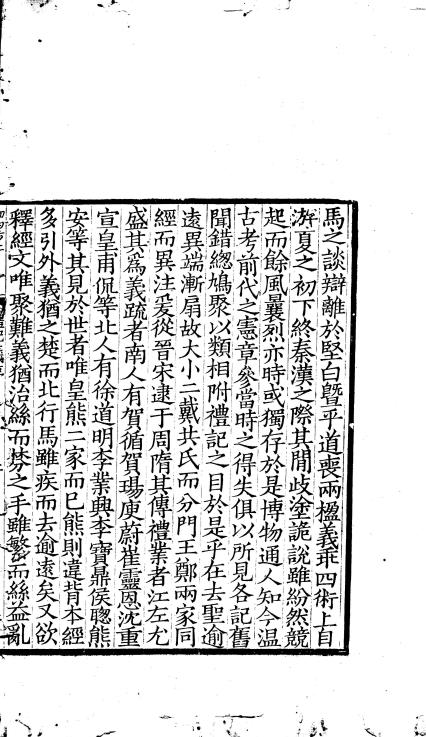 馬之談辯離於堅白曁乎道喪兩楹義乖四術上自
游夏之初下終秦漢之際其閒歧塗詭說雖紛然競
起而餘風曩烈亦時或獨存於是博物通人知今温
古考前代之憲章參當時之得失俱以所見各記舊
聞錯緫鳩聚以類相附禮記之目於是乎在去聖逾
遠異端漸扇故大小二戴共氏而分門王鄭兩家同
經而異注爰從晉宋逮于周隋其傳禮業者江左尤
盛其爲義疏者南人有賀循賀瑒庾蔚崔靈恩沈重
宣皇甫侃等北人有徐道明李業興李寶鼎侯聦熊
安等其見於世者唯皇熊二家而已熊則違背本經
多引外義猶之楚而北行馬雖疾而去逾遠矣又欲
釋經文唯聚難義猶治絲而棼之手雖繁而絲益亂